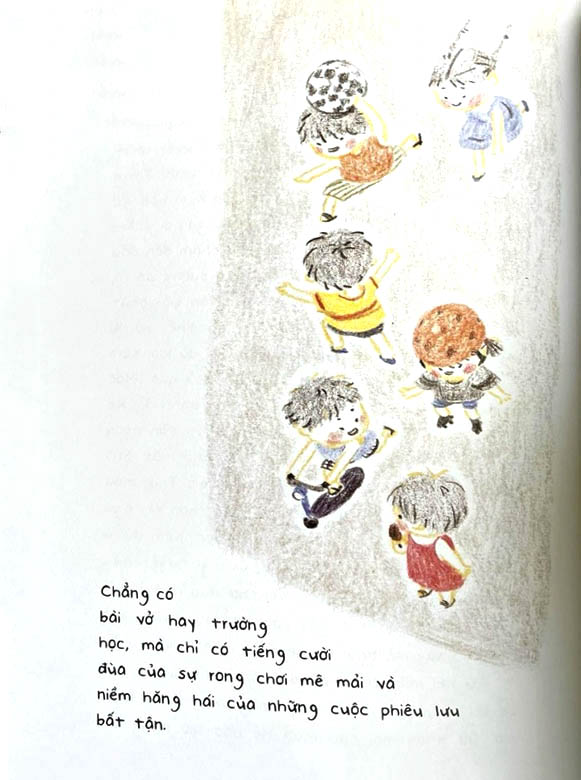 Chẳng có
bài vở hay trường
học, mà chỉ có tiếng cười
đùa của sự rong chơi mê mải và
niềm hăng hái của những cuộc phiêu lưu
bất tận.